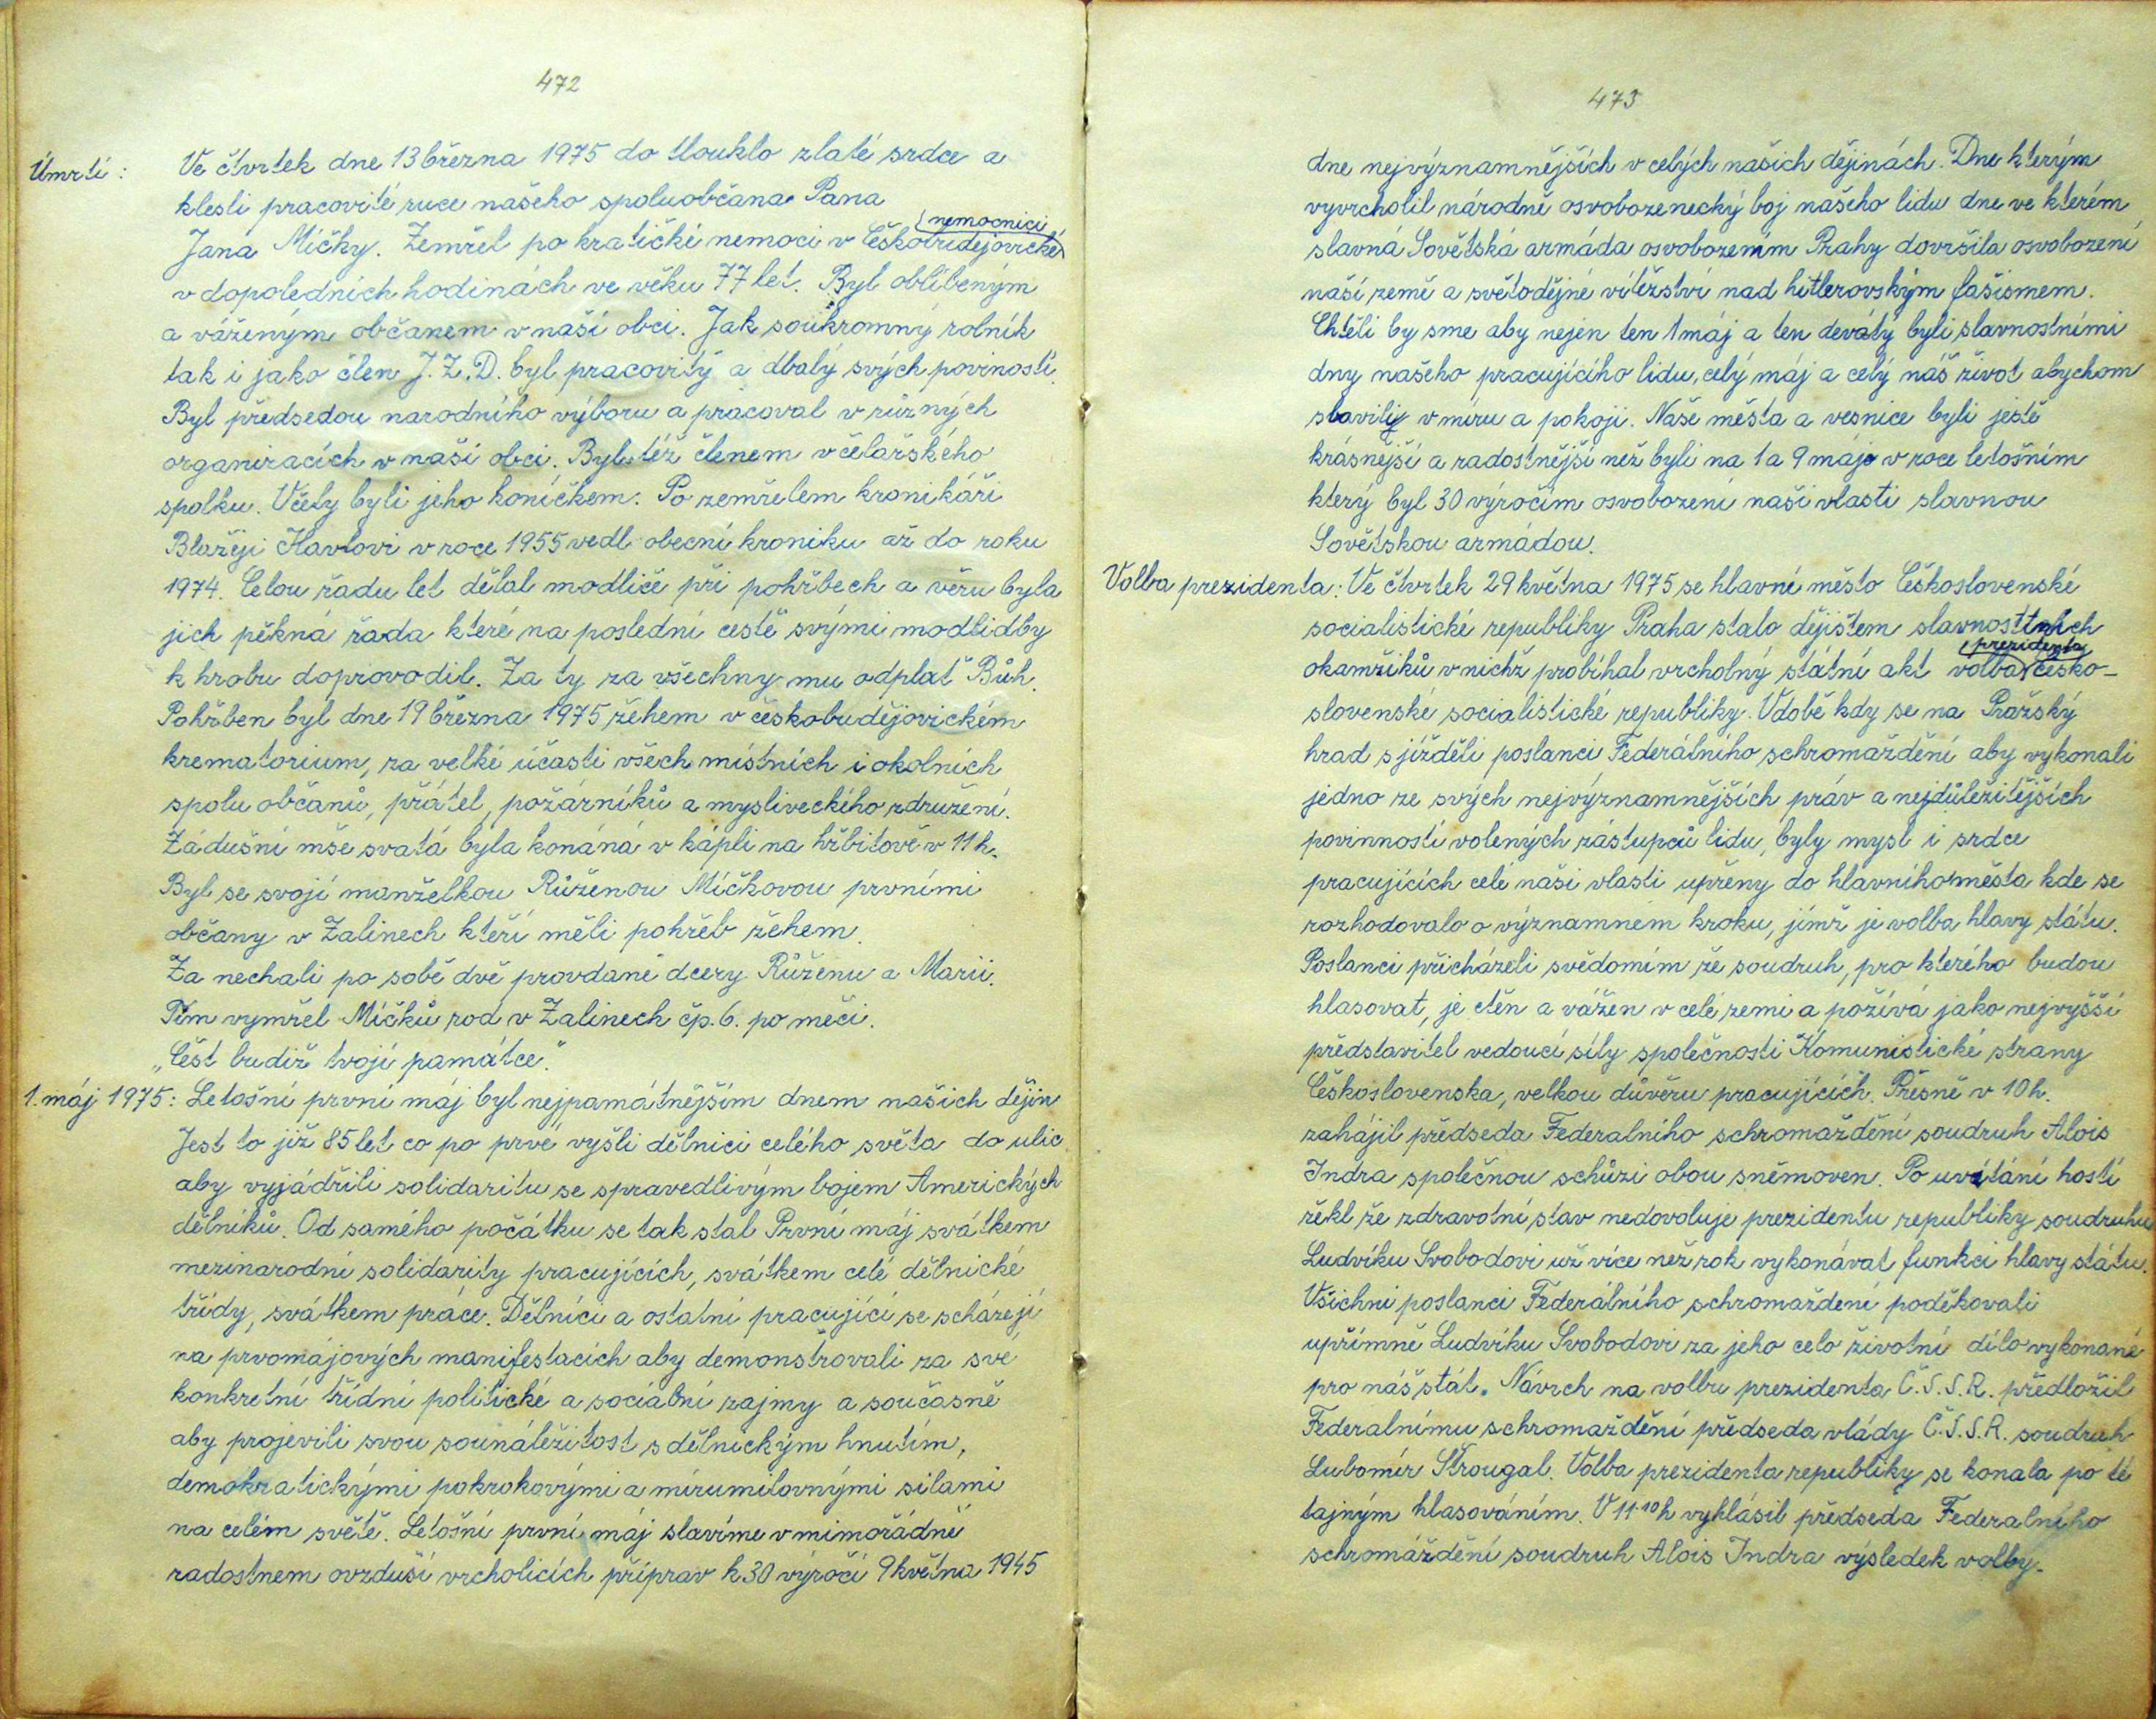 472
Úmrtí: Ve čtvrtek dne 13 března 1975 do tlouklo zlaté srdce a
klesli pracovité ruce našeho spoluobčana Pana
nemocnici
Jana Míčky. Zemřel po kratičké nemoci v Českobudějovické
v dopoledních hodinách ve věku 77 let. Byl oblíbeným
a váženým občanem v naší obci. Jak soukromný rolník
tak i jako člen J.Z.D. byl pracovitý a dbalý svých poviností.
Byl předsedou narodního výboru a pracoval v různých
organizacích v naší obci. Byl též členem včelařského
spolku. Včely byli jeho koníčkem. Po zemřelem kronikáři
Blažeji Havlovi v roce 1955 vedl obecní kroniku až do roku
1974. Celou řadu let dělal modliče při pohřbech a věru byla
jich pěkná řada které na poslední cestě svými modlidby
k hrobu doprovodil. Za ty za všechny mu odplať Bůh.
Pohřben byl dne 19 března 1975 žehem v českobudějovickém
krematorium, za velké účasti všech místních i okolních
spolu občanů, přátel, požárníků a mysliveckého združení.
Zádušní mše svatá byla konáná v kápli na hřbitově v 11 h.
Byl se svojí manželkou Růženou Míčkovou prvními
občany v Zalinech kteří měli pohřeb žehem.
Za nechali po sobě dvě provdané dcery Růženu a Marii.
Tím vymřel Míčků rod v Zalinech čp. 6. po meči.
„Čést budiž tvojí památce."
1. máj 1975: Letošní první máj byl nejpamátnějším dnem našich dějin
Jest to již 85 let co po prvé vyšli dělnici celého světa do ulic
aby vyjádřili solidaritu se spravedlivým bojem Amerických
dělníků. Od samého počátku se tak stal První máj svátkem
mezinarodní solidarity pracujících, svátkem celé dělnické
třídy, svátkem práce. Dělníci a ostatní pracující se scházejí
na prvomájových manifestacích aby demonstrovali za sve
konkretní třídní politické a sociální zajmy a současně
aby projevili svou sounáležitost s dělnickým hnutím,
demokratickými pokrokovými a mírumilovnými silami
na celém světě. Letošní první máj slavíme v mimořádně
radostnem ovzduší vrcholicích příprav k 30 výročí 9 května 1945
473
dne nejvýznamnějších v celých našich dějinách. Dne kterým
vyvrcholil národně osvobozenecký boj našeho lidu dne ve kterém
slavná Sovětská armáda osvobozením Prahy dovršila osvobození
naší země a světodějné vítězství nad hitlerovským fašismem.
Chtěli by sme aby nejen ten 1 máj a ten devátý byli slavnostními
dny našeho pracujícího lidu, celý máj a celý náš život abychom
slavily v míru a pokoji. Naše města a vesnice byli jestě
krásnější a radostnější než byli na 1 a 9 máje v roce letošním
který byl 30 výročím osvobození naší vlasti slavnou
Sovětskou armádou.
Volba prezidenta: Ve čtvrtek 29 května 1975 se hlavní město Československé
socialistické republiky Praha stalo dějištem slavnosttních
prezidenta
okamžiků v nichž probíhal vrcholný státní akt volba česko-
slovenské socialistické republiky. Vdobě kdy se na Pražský
hrad sjížděli poslanci Federálního schromaždění aby vykonali
jedno ze svých nejvýznamnějších práv a nejdůležitějších
povinností volených zástupců lidu, byly mysl i srdce
pracujících celé naší vlasti upřeny do hlavního města kde se
rozhodovalo o významném kroku, jímž je volba hlavy státu.
Poslanci přicházeli svědomím že soudruh, pro kterého budou
hlasovat, je ctěn a vážen v celé zemi a požívá jako nejvyšší
představitel vedoucí síly společnosti Komunistické strany
Československa, velkou důvěru pracujících. Přesně v 10 h.
zahájil předseda Federalního schromaždění soudruh Alois
Indra společnou schůzi obou sněmoven. Po uvítání hostí
řekl že zdravotní stav nedovoluje prezidentu republiky soudruhu
Ludvíku Svobodovi už více než rok vykonávat funkci hlavy státu.
Všichni poslanci Federálního schromaždení poděkovali
upřímně Ludvíku Svobodovi za jeho celo životní dílo vykonané
pro náš stát. Návrch na volbu prezidenta Č.S.S.R. předložil
Federalnímu schromaždění předseda vlády Č.S.S.R. soudruh
Lubomír Štrougal. Volba prezidenta republiky se konala po té
tajným hlasováním. V 11·10 h vyhlásil předseda Federalního
schromáždění soudruh Alois Indra výsledek volby.